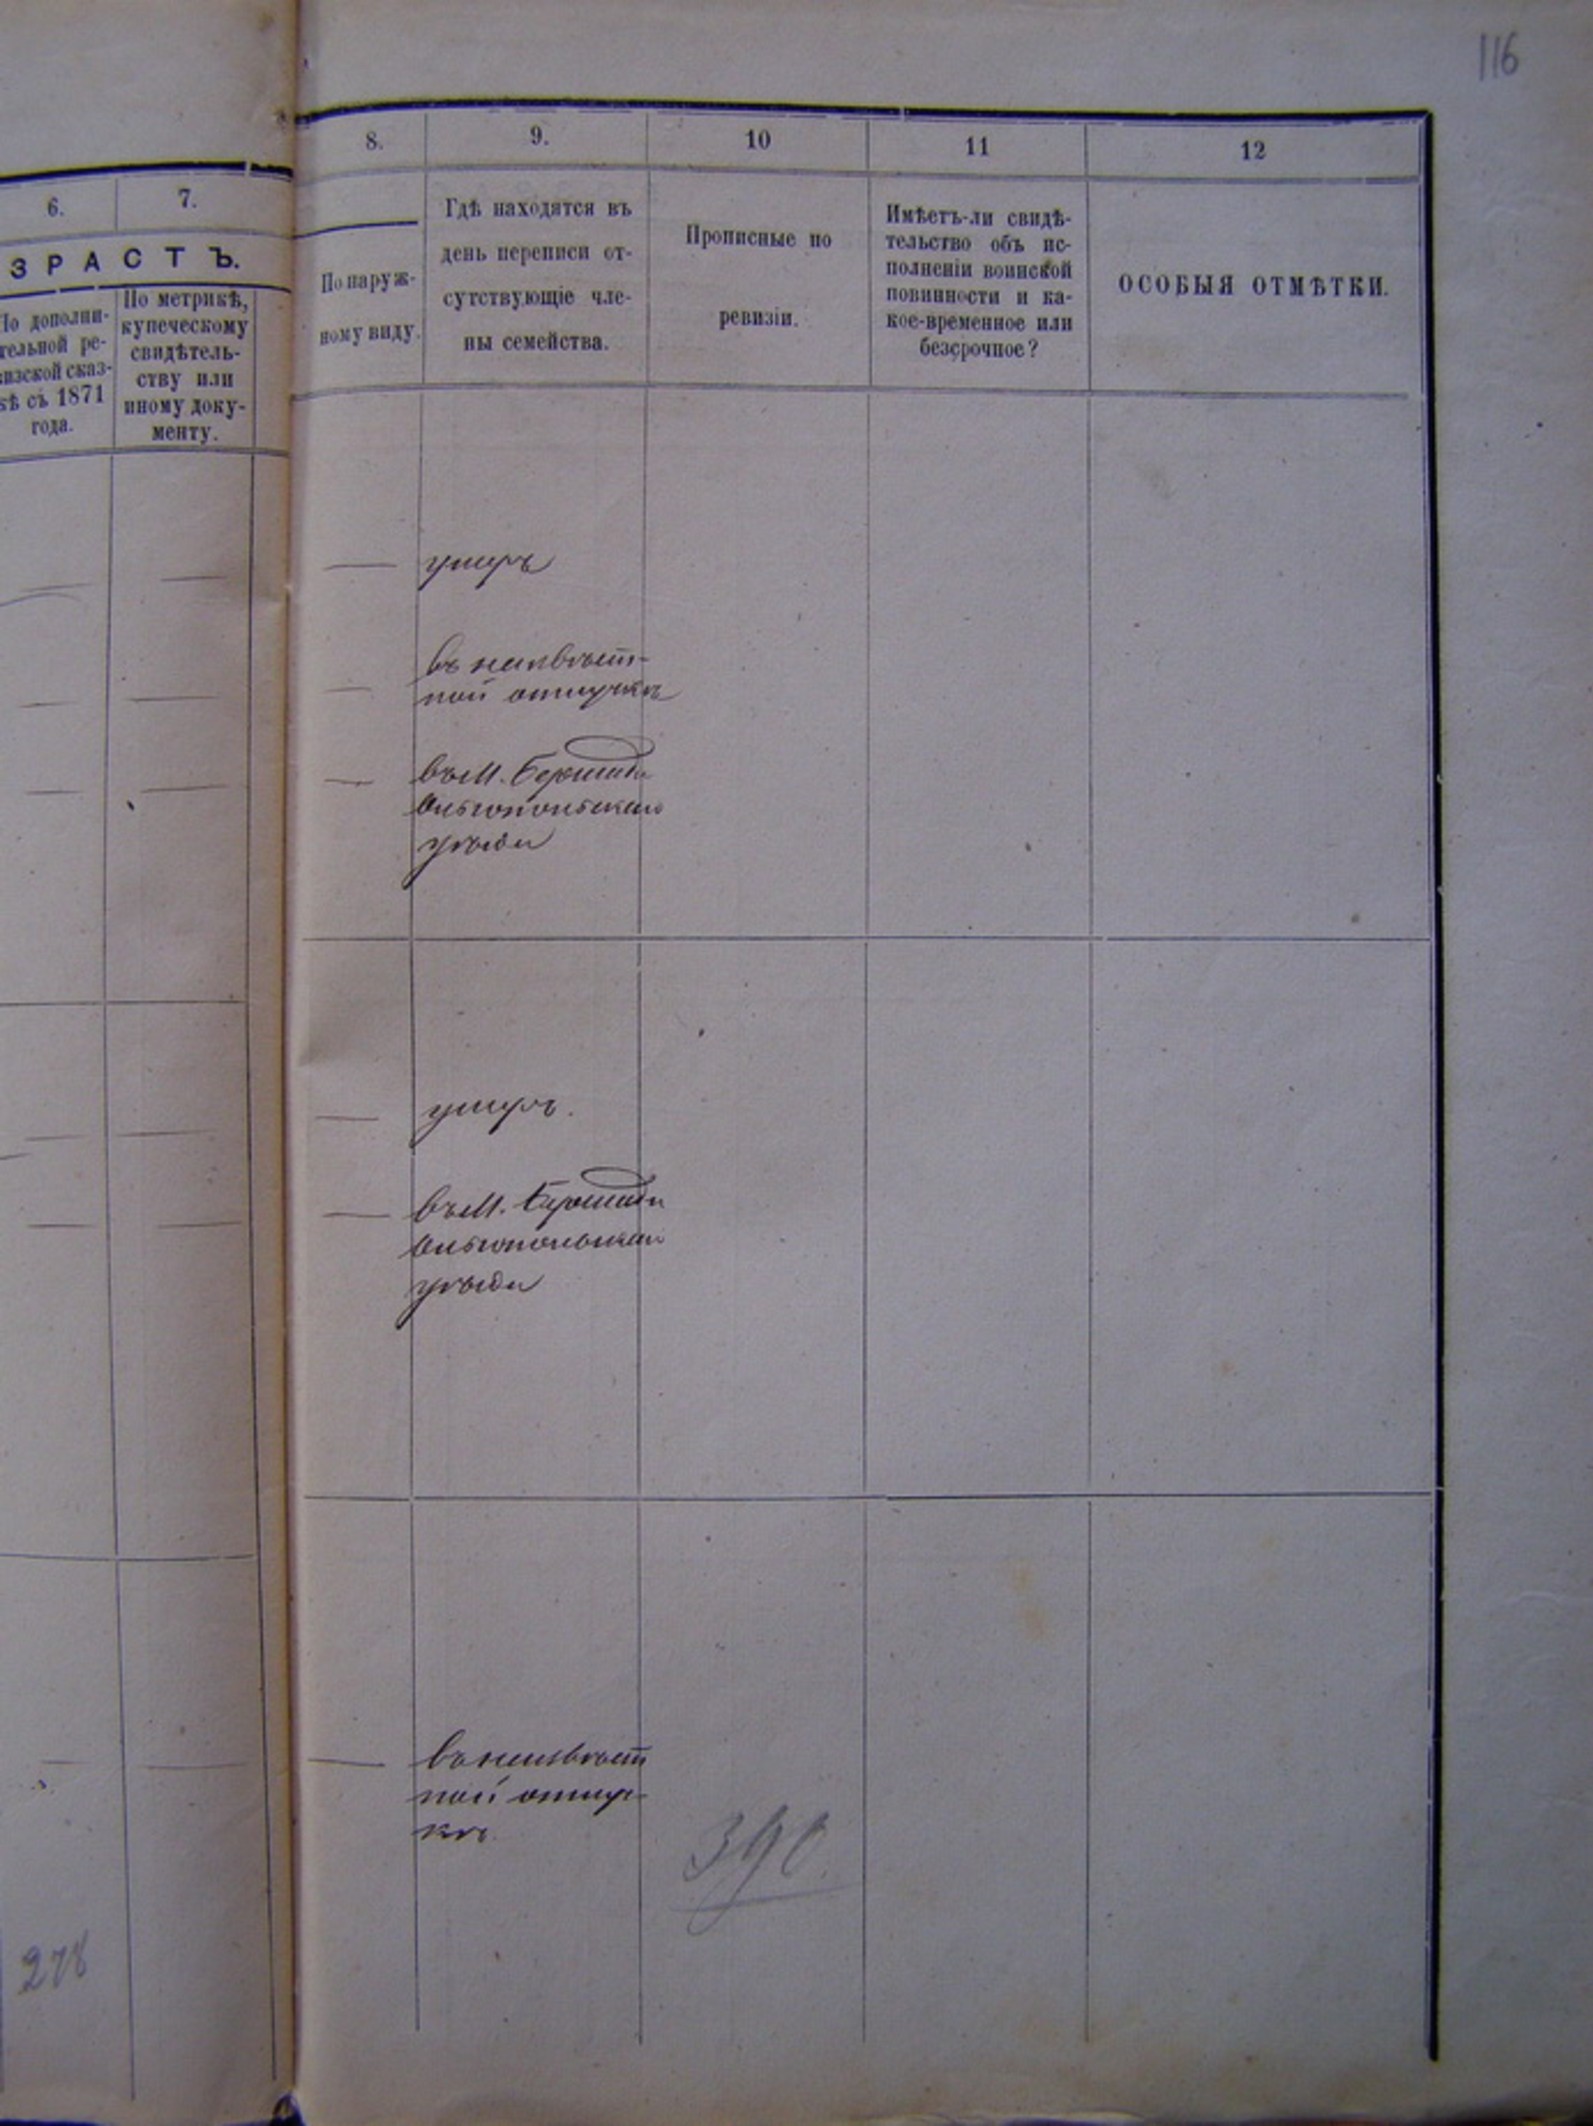 116
6.
7.
ЗРАСТЪ.
По дополни-
тельной ре-
визской сказ-
кѣ съ 1871
года.
По метрикѣ,
купеческому
свидѣтель-
ству или
иному доку-
менту.
8.
9.
10
11
12
По наруж-
ному виду.
Гдѣ находятся въ
день переписи от-
сутствующіе чле-
ны семейства.
Прописные по
ревизіи.
Имѣетъ-ли свидѣ-
тельство объ ис-
полненіи воинской
повинности и ка-
кое-временное или
безсрочное?
ОСОБЫЯ ОТМѢТКИ.
умеръ
въ неизвѣст-
ной отлучкѣ
въ М. Бершади
Ольгопольскаго
уѣзда
умеръ.
въ М. Бершади
Ольгопольскаго
уѣзда
въ неизвѣст
ной отлуч-
кѣ.
390.
278